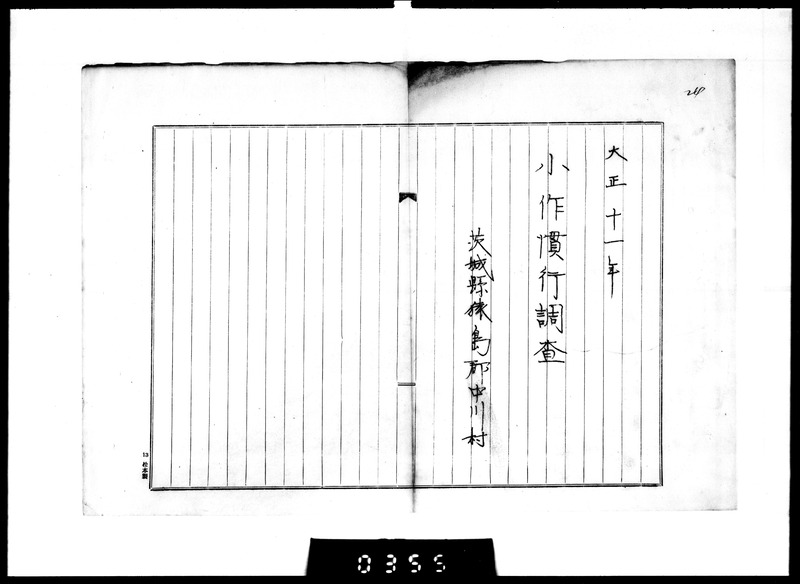 大正十一年
小作慣行調査
茨城縣猿島郡中川村
13 松本製
0355